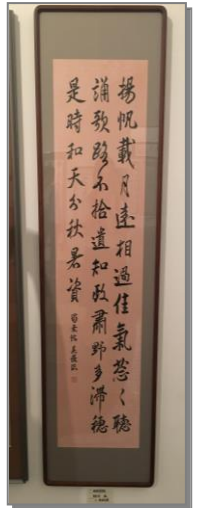 揚帆載月遠相過佳氣葱々聽
誦歌路不拾遺知政肅野多滯穗
是時和天分秋暑資 蜀素帖